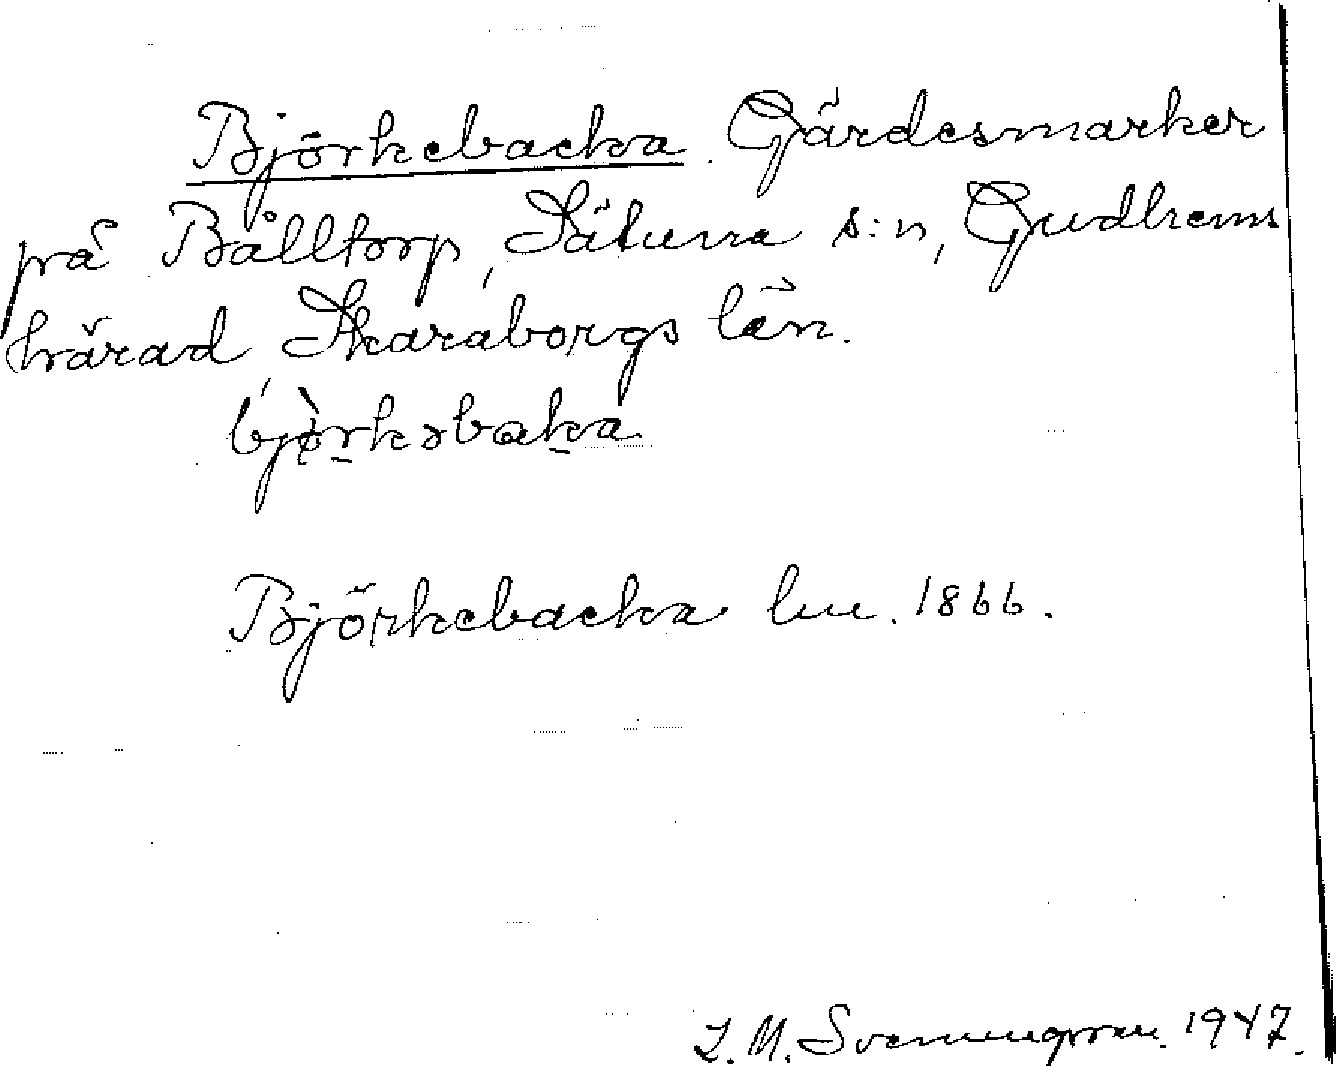 Björkebacka. Gärdesmarker
på Bålltorp, Sätuna s:n, Gudhems
härad, Skaraborgs län.
bjò̱rkəbaka
Björkebacka lm. 1866.
I. M. Svenungsson. 1947.